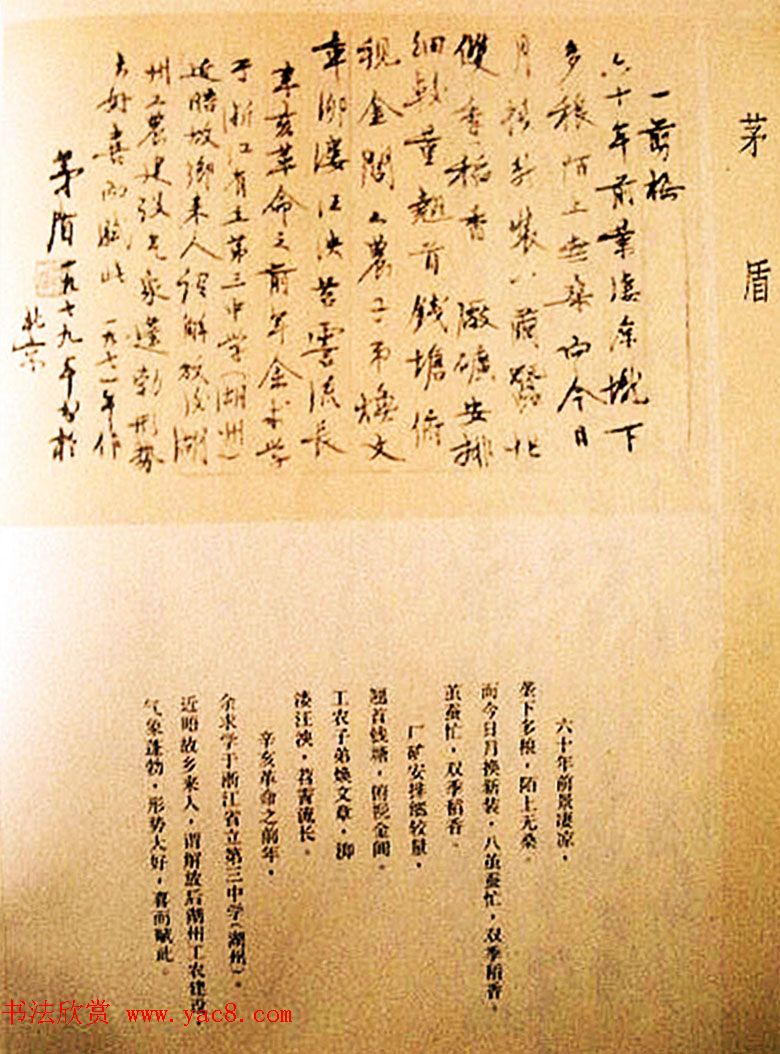 茅盾
一剪梅
六十年前景凄凉壠下
多稂陌上無桑而今日
月换新装八茧蚕忙
雙季稻香 廠礦安排
细較量翹首錢塘俯
視金閶工農子弟焕文
章泖溇汪泱苕霅流長
辛亥革命之前年余求学
于浙江省立第三中学(湖州)
近晤故鄉来人谓解放後湖
州工農建设气象蓬勃形势
大好喜而賦此 一九七一年作
茅盾一九七九年书於
北京
六十年前景凄凉，
垄下多稂，陌上无桑。
而今日月换新装，八茧蚕忙，双季稻香。
茧蚕忙，双季稻香。
厂矿安排细较量，
翘首钱塘，俯视金阊。
工农子弟焕文章，泖
溇汪泱，苕霅流长。
辛亥革命之前年，
余求学于浙江省立第三中学(湖州)。
近晤故乡来人，谓解放后湖州工农建设，
气象蓬勃，形势大好，喜而赋此。
书法欣赏 www.yac8.com